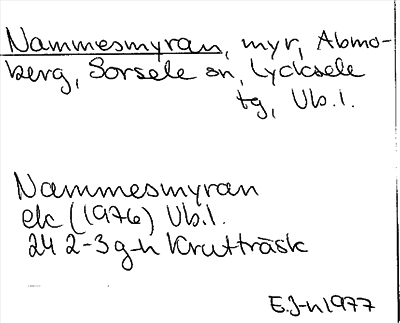 Nammesmyran, myr, Abmo-
berg, Sorsele sn, Lycksele
tg, Vb.l.
Nammesmyran
ek (1976) Vb.l.
24 2-3 g-h Krutträsk
E.J-n 1977